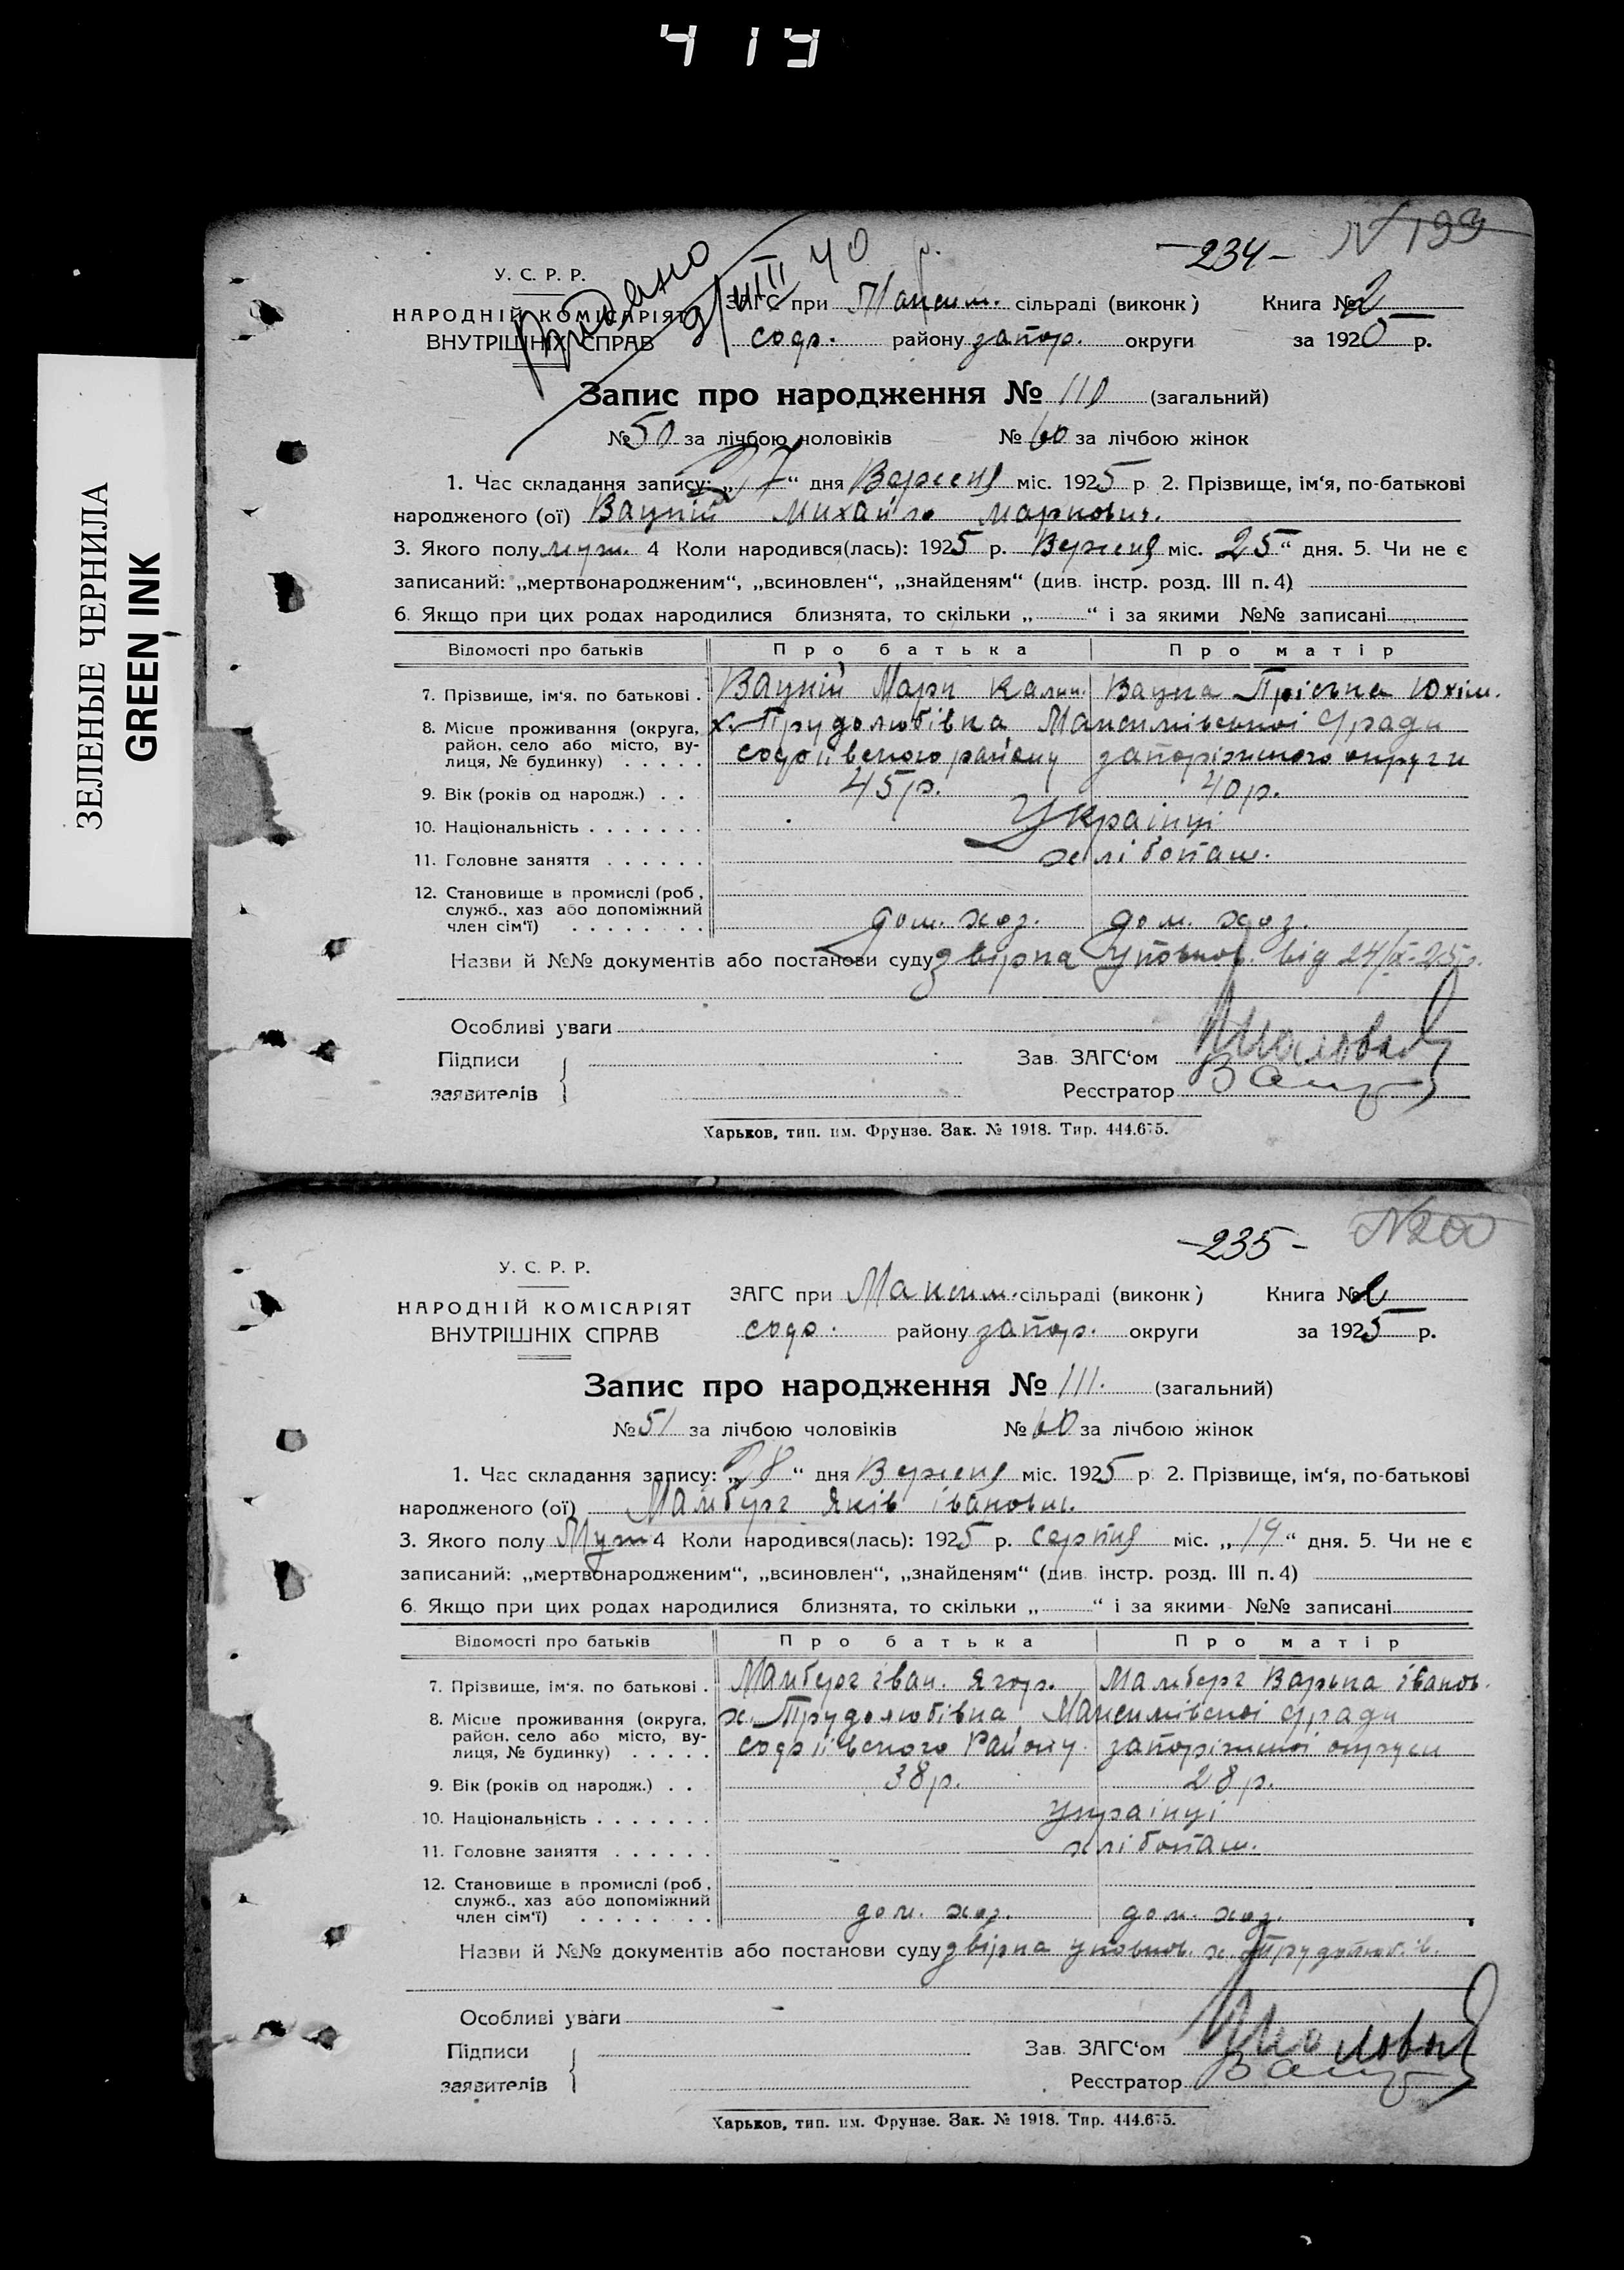 419
ЗЕЛЕНЫЕ ЧЕРНИЛА
GREEN INK
-234- N 199
У. С. Р. Р.
НАРОДНІЙ КОМІСАРІЯТ
ВНУТРІШНІХ СПРАВ
40 р.
ЗАГС при Максим. сільраді (виконк) Книга № 2
соф. району запор. округи за 1925 р.
Запис про народження № 110 (загальний)
№ 50 за лічбою чоловіків № 60 за лічбою жінок
1. Час складання запису: „27“ дня Вересня міс. 1925 р. 2. Прізвище, ім'я, по-батькові
народженого (ої) Вацкій Михайло Маркович.
3. Якого полу муж. 4 Коли народився(лась): 1925 р. Вересня міс. 25“ дня. 5. Чи не є
записаний: „мертвонародженим“, „всиновлен“, „знайденям“ (див. інстр. розд. III п. 4)
6. Якщо при цих родах народилися близнята, то скільки „ “ і за якими №№ записані
Відомості про батьків Про батька Про матір
7. Прізвище, ім'я. по батькові . Вацкій Марк Калин. Вацка Пріська Юхім.
8. Місце проживання (округа, район, село або місто, вулиця, № будинку) х. Трудолюбівка Максимівської с/ради
софіївского району запоріжского округи
9. Вік (років од народж.) . . 45 р. 40 р.
10. Національність Українці
11. Головне заняття хлібопаш.
12. Становище в промислі (роб, служб., хаз або допоміжний член сім'ї) дом. хоз. дом. хоз.
Назви й №№ документів або постанови суду звірка уповнов. від 24/IX-25р.
Особливі уваги
Підписи
заявителів
Зав. ЗАГС‘ом
Реєстратор
Харьков, тип. им. Фрунзе. Зак. № 1918. Тир. 444.675.
-235- N 200
У. С. Р. Р.
НАРОДНІЙ КОМІСАРІЯТ
ВНУТРІШНІХ СПРАВ
ЗАГС при Максим. сільраді (виконк) Книга № 2
соф. району запор. округи за 1925 р.
Запис про народження № 111. (загальний)
№ 51 за лічбою чоловіків № 60 за лічбою жінок
1. Час складання запису: „28“ дня Вересня міс. 1925 р. 2. Прізвище, ім'я, по-батькові
народженого (ої) Мамберг Яків Іванович.
3. Якого полу Муж 4 Коли народився(лась): 1925 р. серпня міс. „19“ дня. 5. Чи не є
записаний: „мертвонародженим“, „всиновлен“, „знайденям“ (див. інстр. розд. III п. 4)
6. Якщо при цих родах народилися близнята, то скільки „ “ і за якими №№ записані
Відомості про батьків Про батька Про матір
7. Прізвище, ім'я. по батькові . Мамберг Іван. Ягор. Мамберг Варька Іванов.
8. Місце проживання (округа, район, село або місто, вулиця, № будинку) х. Трудолюбівка Максимівської с/ради
софіївского Району запоріжської округи
9. Вік (років од народж.) . . 38 р. 28 р.
10. Національність українці
11. Головне заняття хлібопаш.
12. Становище в промислі (роб, служб., хаз або допоміжний член сім'ї) дом. хоз. дом. хоз.
Назви й №№ документів або постанови суду звірка уповнов. х. Трудолюбів.
Особливі уваги
Підписи
заявителів
Зав. ЗАГС‘ом
Реєстратор
Харьков, тип. им. Фрунзе. Зак. № 1918. Тир. 444.675.